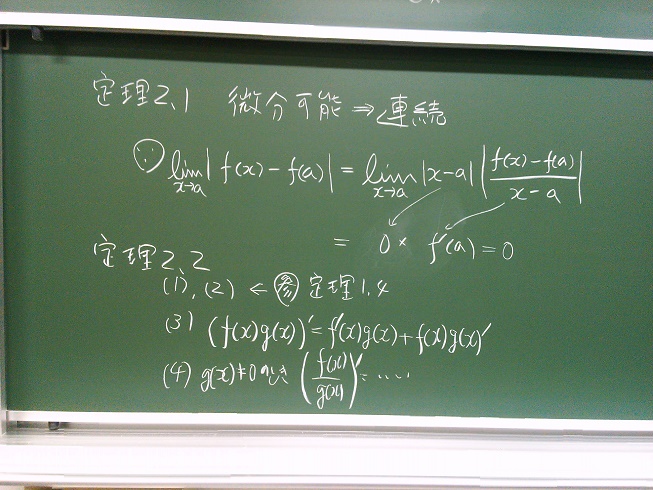 定理2.1 微分可能 ⇒ 連続
∵ lim_{x→a} | f(x) − f(a) | = lim_{x→a} |x−a| | (f(x)−f(a))/(x−a) |
= 0 × f'(a) = 0
定理2.2
(1), (2) ← 参 定理1.4
(3) (f(x)g(x))' = f'(x)g(x) + f(x)g(x)'
(4) g(x)≠0 のとき (f(x)/g(x))' = ‥‥